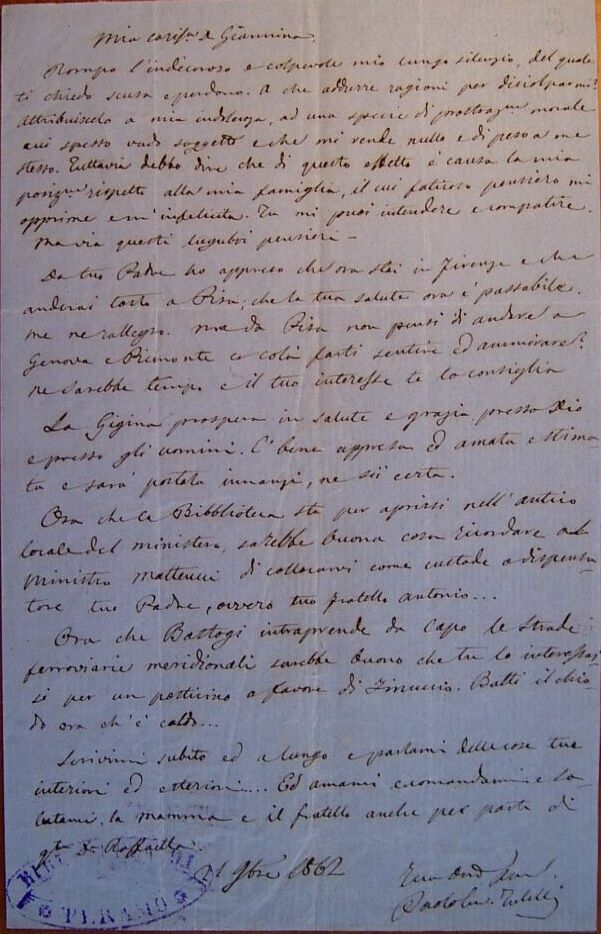 Mia cariss.a D. Giannina.
Rompo l'indecoroso e colpevole mio lungo silenzio, del quale
ti chiedo scusa e perdono. A che addurre ragioni per discolparmi?
Attribuiscelo a mia indolenza, ad una specie di morale
cui spesso vado soggetto e che mi rende nullo e di peso a me
stesso. Tuttavia debbo dire che di questo effetto è causa la mia
rispetto alla mia famiglia, il cui faticoso pensiero mi
opprime e m'infelicita. Tu mi puoi intendere e compatire.
Ma via questi lugubri pensieri -
Da tuo Padre ho appreso che ora stai in Firenze e che
anderai tosto a Pisa; che la tua salute ora è passabile.
me ne rallegro. ma da Pisa non pensi di andare a
Genova e Piemonte e colà farti sentire ed ammirare?
ne sarebbe tempo e il tuo interesse te lo consiglia
La Gigina prospera in salute e grazia presso Dio
e presso gli uomini. È bene appresa ed amata e stima-
ta e sarà portata innanzi, ne sii certa.
Ora che la Bibblioteca sta per aprirsi nell'antico
locale del ministero, sarebbe buona cosa ricordare al
Ministro Matteucci di collocarvi come custode o dispensa
tore tuo Padre, ovvero tuo fratello Antonio...
Ora che Bastogi intraprende da capo le strade
ferroviarie meridionali sarebbe buono che tu lo interessas
si per un posticino a favore di . Batti il chio
do ora ch'è caldo...
Scrivimi subito ed a lungo e parlami delle cose tue
interiori ed esteriori... Ed amami e comandami e sa-
lutami la mamma e il fratello anche per parte di
D. Raffaella.
21 9bre 1862
TERAMO